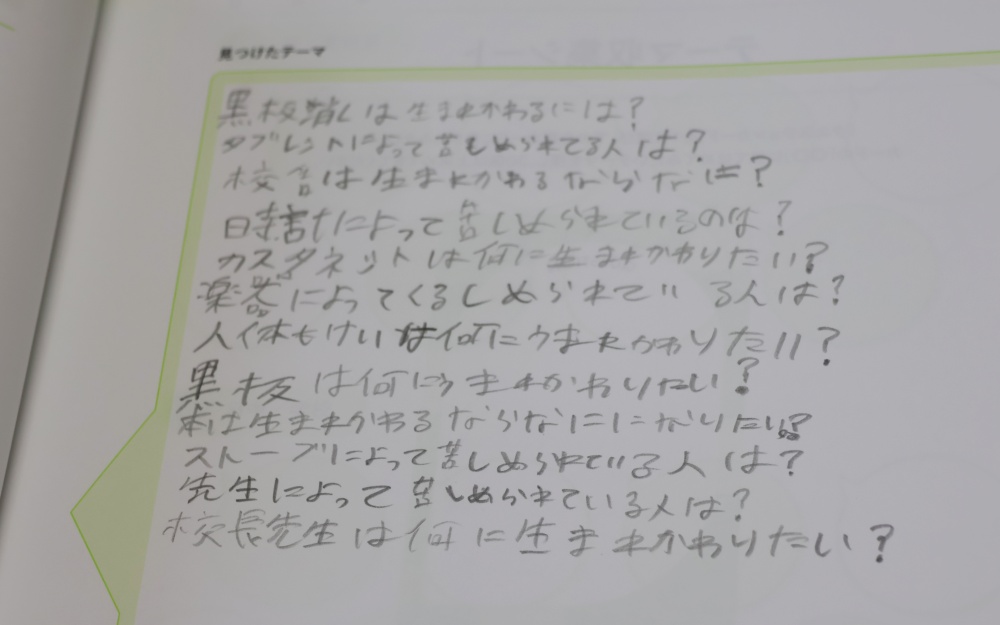 見つけたテーマ
黒板消しは生まれかわるには?
タブレットによって苦しめられてる人は?
校舎は生まれかわるならなに?
日直によって苦しめられているのは?
カスタネットは何に生まれかわりたい?
楽器によってくるしめられている人は?
人体もけいは何にうまれかわりたい?
黒板は何にうまれかわりたい?
本は生まれかわるならなにになりたい?
ストーブによって苦しめられている人は?
先生によって苦しめられている人は?
校長先生は何に生まれかわりたい?